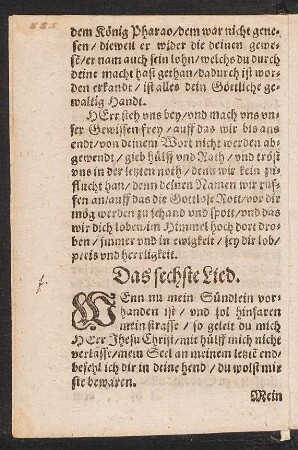 dem König Pharao/dem war nicht gene-
sen / dieweil er wider die deinen gewe-
sē/er nam auch sein lohn/welchs du durch
deine macht hast gethan/dadurch ist wor-
den erkandt / ist alles dein Göttliche ge-
waltig Handt.
HErr steh vns bey/vnd mach vns vn-
ser Gewissen frey / auff das wir bis ans
endt/von deinem Wort nicht werden ab-
gewendt / gieb hülff vnd Rath / vnd tröst
vns in der letzten noth / denn wir kein zu-
flucht han/denn deinen Namen wir ruf-
fen an/auff das die Gottlose Rott/vor dir
mög werden zu schand vnd spott/vnd das
wir dich loben/im Himmel hoch dort dro-
ben / jmmer vnd in ewigkeit / sey dir lob/
preis vnd herrligkeit.
Das sechste Lied.
WEnn nu mein Stündlein vor-
handen ist / vnd sol hinfaren
mein strasse / so geleit du mich
HErr Jhesu Christ/mit hülff mich nicht
verlasse/mein Seel an meinem letztē end/
befehl ich dir in deine hend / du wolst mir
sie bewaren.
Mein